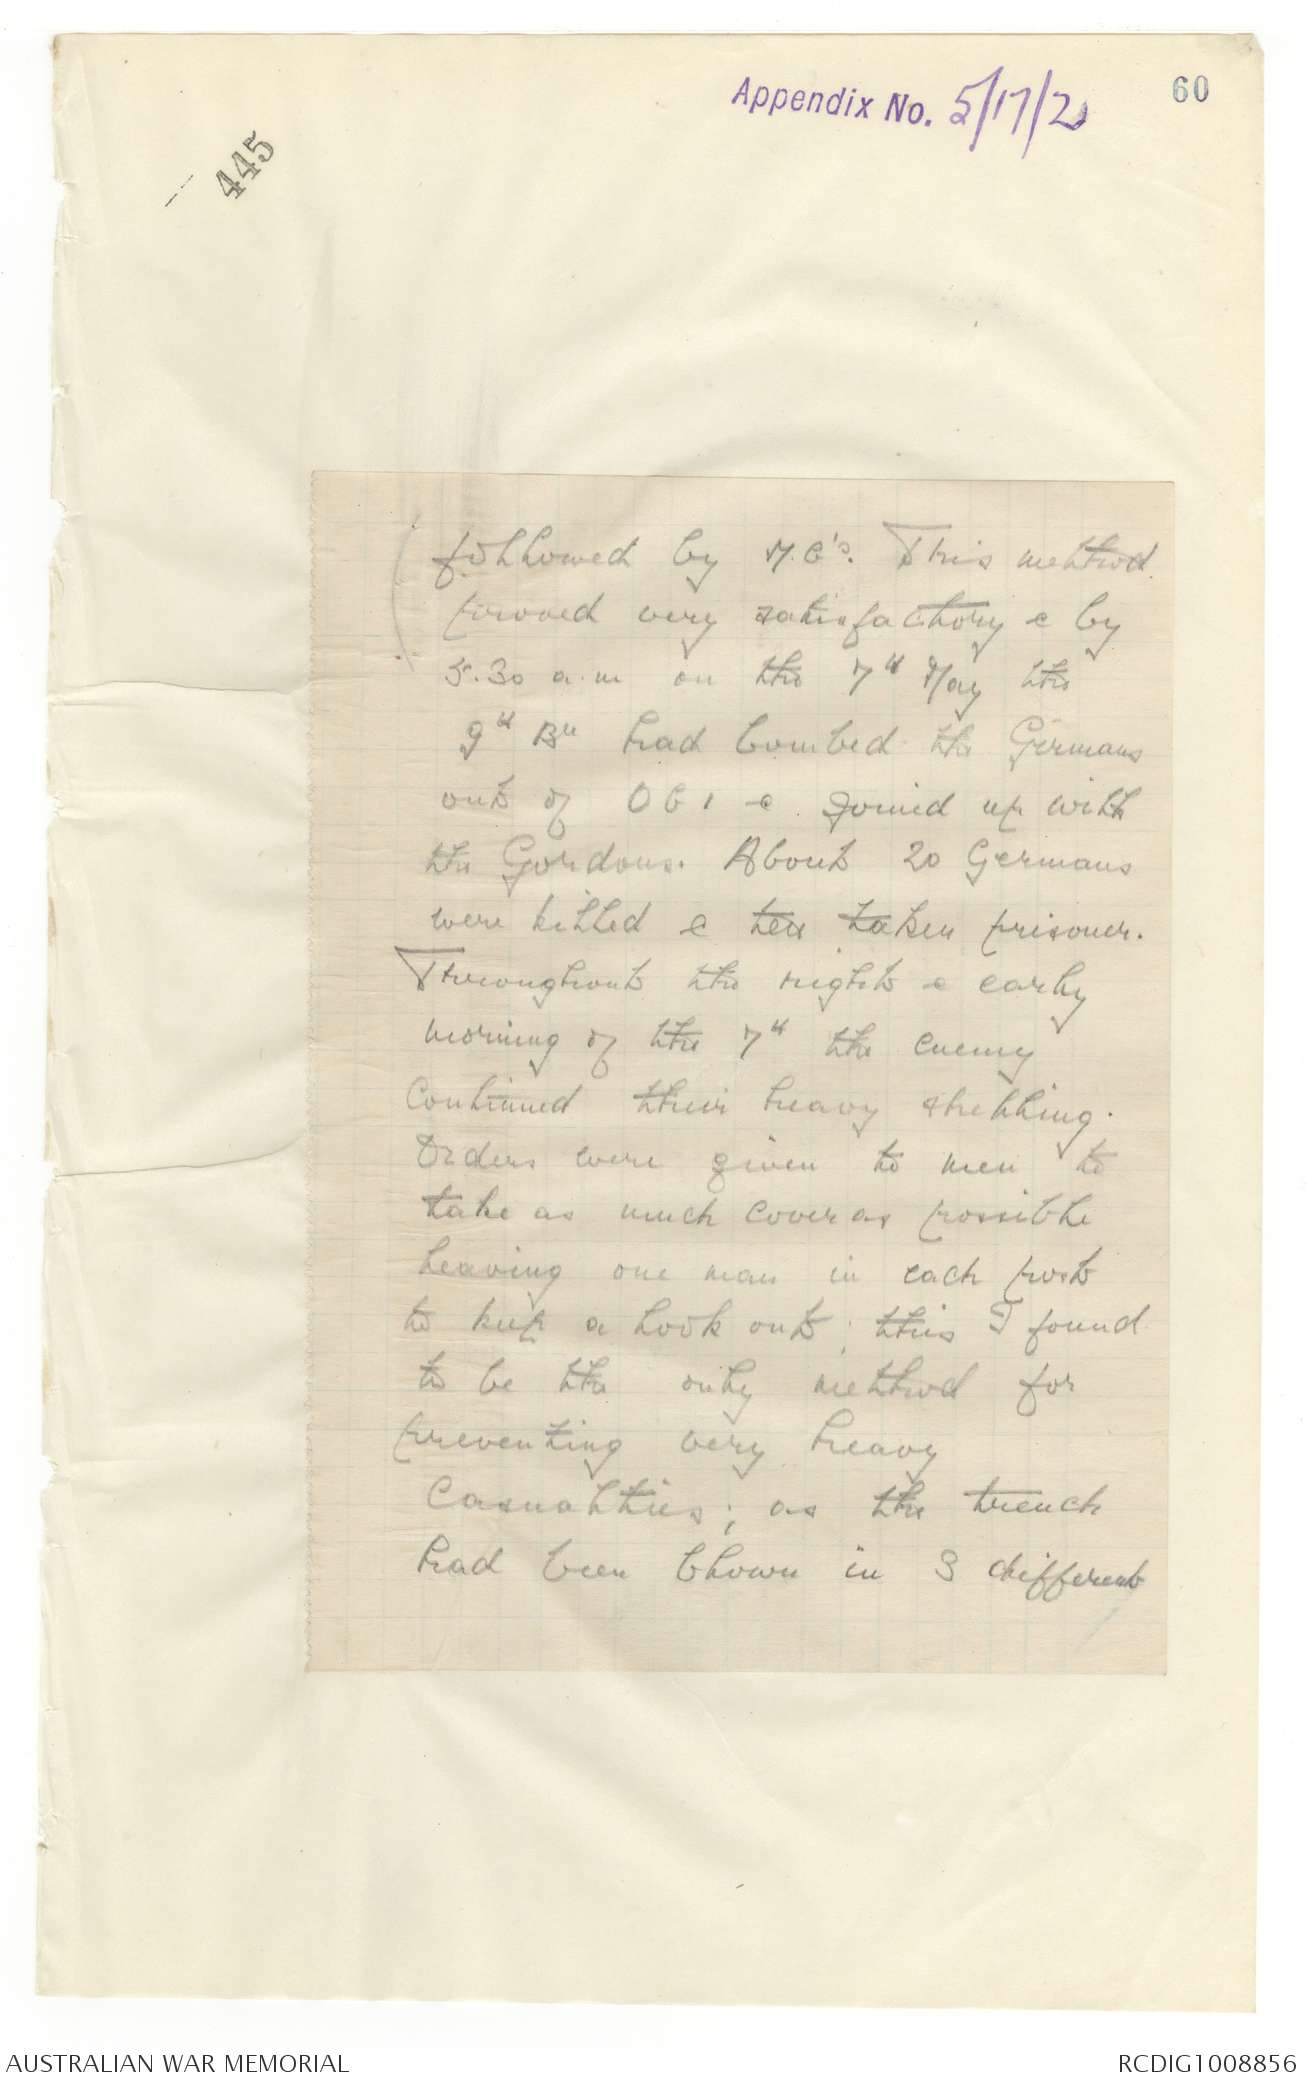 Appendix No. 5/17/2
60
445
followed by M.G's. This method
proved very satisfactory & by
5.30 a.m on the 7th May the
9th Bn had bombed the Germans
out of OG1 & joined up with
the Gordons. About 20 Germans
were killed & ten taken prisoner.
Throughout the night & early
morning of the 7th the enemy
continued their heavy shelling.
Orders were given to men to
take as much cover as possible
leaving one man in each post
to keep a look out; this I found
to be the only method for
preventing very heavy
casualties; as the trench
had been blown in 3 different
AUSTRALIAN WAR MEMORIAL
RCDIG1008856